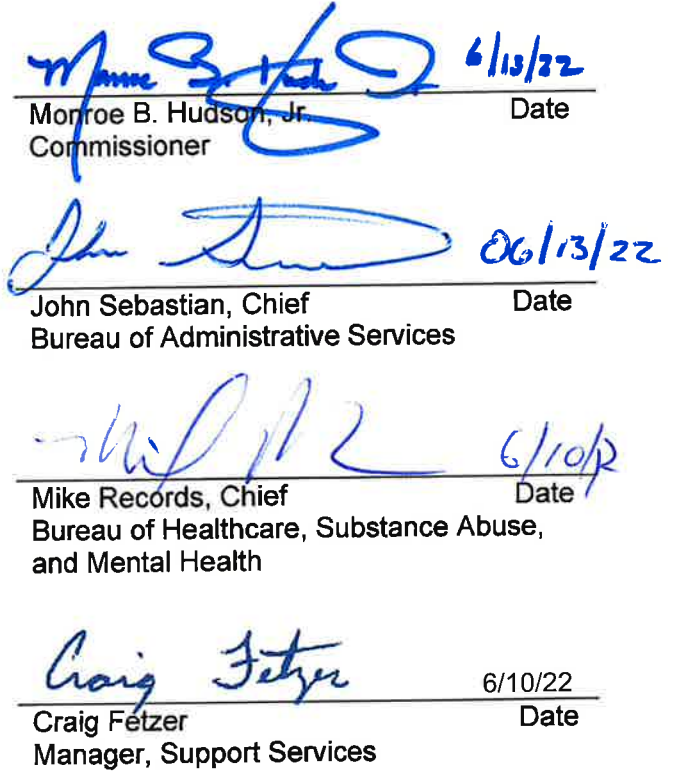 Monroe B. Hudson Jr. 6/13/22
Monroe B. Hudson, Jr. Date
Commissioner
06/13/22
John Sebastian, Chief Date
Bureau of Administrative Services
Mike Records, Chief Date
Bureau of Healthcare, Substance Abuse,
and Mental Health
Craig Fetzer 6/10/22
Craig Fetzer Date
Manager, Support Services